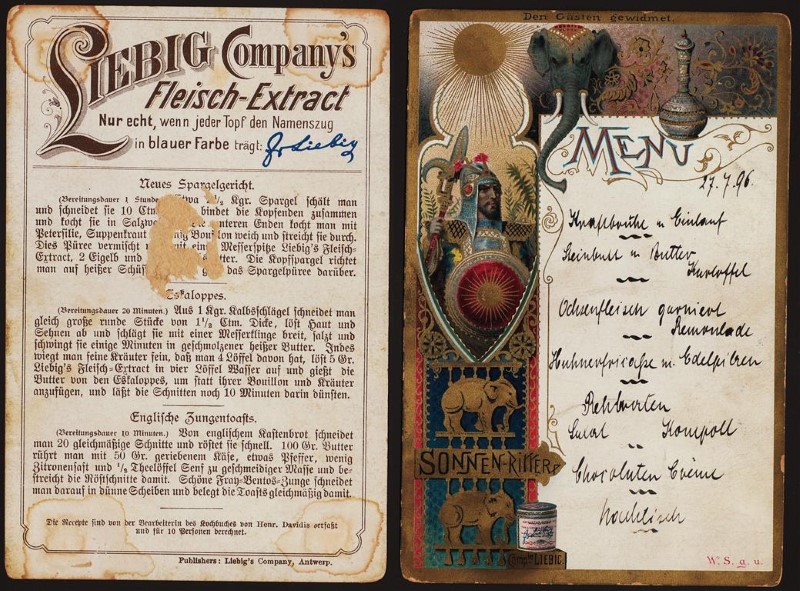 LIEBIG Company's
Fleisch-Extract
Nur echt, wenn jeder Topf den Namenszug
in blauer Farbe trägt: J v Liebig
Neues Spargelgericht.
(Bereitungsdauer 1 Stunde) Etwa 1/2 Kgr. Spargel schält man
und schneidet sie 10 Ctm. bindet die Kopfenden zusammen
und kocht sie in Salzw unteren Enden kocht man mit
Petersilie, Suppenkraut Bouillon weich und streicht sie durch.
Dies Püree vermischt mit einer Messerspitze Liebig's Fleisch=
Extract, 2 Eigelb und Butter. Die Kopfspargel richtet
man auf heißer Schüssel das Spargelpüree darüber.
Eskaloppes.
(Bereitungsdauer 20 Minuten.) Aus 1 Kgr. Kalbsschlägel schneidet man
gleich große runde Stücke von 1 1/2 Ctm. Dicke, löst Haut und
Sehnen ab und schlägt sie mit einer Messerklinge breit, salzt und
schwingt sie einige Minuten in geschmolzener heißer Butter. Indes
wiegt man feine Kräuter fein, daß man 4 Löffel davon hat, löst 5 Gr.
Liebig's Fleisch=Extract in vier Löffel Wasser auf und gießt die
Butter von den Eskaloppes, um statt ihrer Bouillon und Kräuter
anzufügen, und läßt die Schnitten noch 10 Minuten darin dünsten.
Englische Zungentoasts.
(Bereitungsdauer 10 Minuten.) Von englischem Kastenbrot schneidet
man 20 gleichmäßige Schnitte und röstet sie schnell. 100 Gr. Butter
rührt man mit 50 Gr. geriebenem Käse, etwas Pfeffer, wenig
Zitronensaft und 1/2 Theelöffel Senf zu geschmeidiger Masse und be=
streicht die Röstschnitte damit. Schöne Fray=Bentos=Zunge schneidet
man darauf in dünne Scheiben und belegt die Toasts gleichmäßig damit.
Die Recepte sind von der Bearbeiterin des Kochbuches von Henr. Davidis verfaßt
und für 10 Personen berechnet.
Publishers: Liebig's Company, Antwerp.
Den Gästen gewidmet.
MENU
27.7.96.
Kraftbrühe u Einlauf
Steinbutt u Butter
Kartoffel
Ochsenfleisch garniert
Remoulade
Huhnerfricaße m. Edelpilzen
Rehbraten
Salat Kompott
Chocoladen Crême
Nachtisch
SONNEN-RITTER
LIEBIG
W. S. g. u.